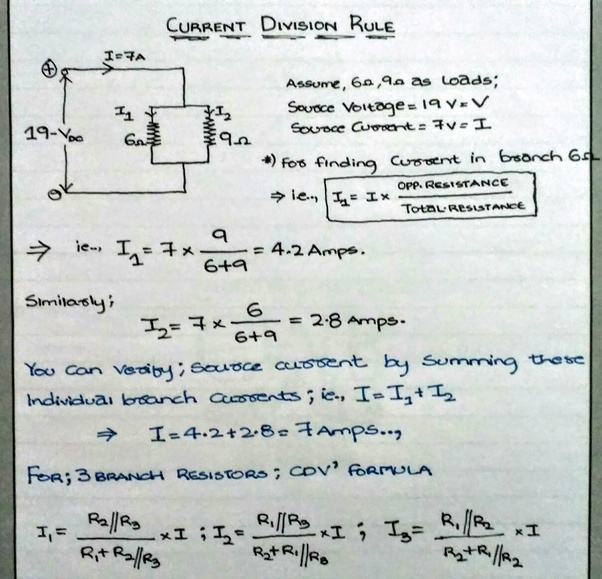 CURRENT DIVISION RULE
I=7A
19-VDC
I1
6Ω
I2
9Ω
Assume, 6Ω, 9Ω as Loads;
Source Voltage = 19V = V
Source Current = 7V = I
*) For finding Current in branch 6Ω
⇒ ie.., I1 = I × OPP. RESISTANCE / TOTAL RESISTANCE
⇒ ie.., I1 = 7 × 9 / 6+9 = 4.2 Amps.
Similarly;
I2 = 7 × 6 / 6+9 = 2.8 Amps.
You can verify; source current by summing these
Individual branch currents; ie., I = I1 + I2
⇒ I = 4.2 + 2.8 = 7 Amps..,
FOR; 3 BRANCH RESISTORS; CDV' FORMULA
I1 = R2//R3 / R1+R2//R3 × I ; I2 = R1//R3 / R2+R1//R3 × I ; I3 = R1//R2 / R2+R1//R2 × I